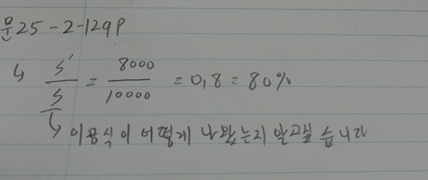 문25-2-129P
↳ S'/S = 8000/10000 = 0,8 = 80%
↳ 이용식이 어떻게 나왔는지 알고싶습니다